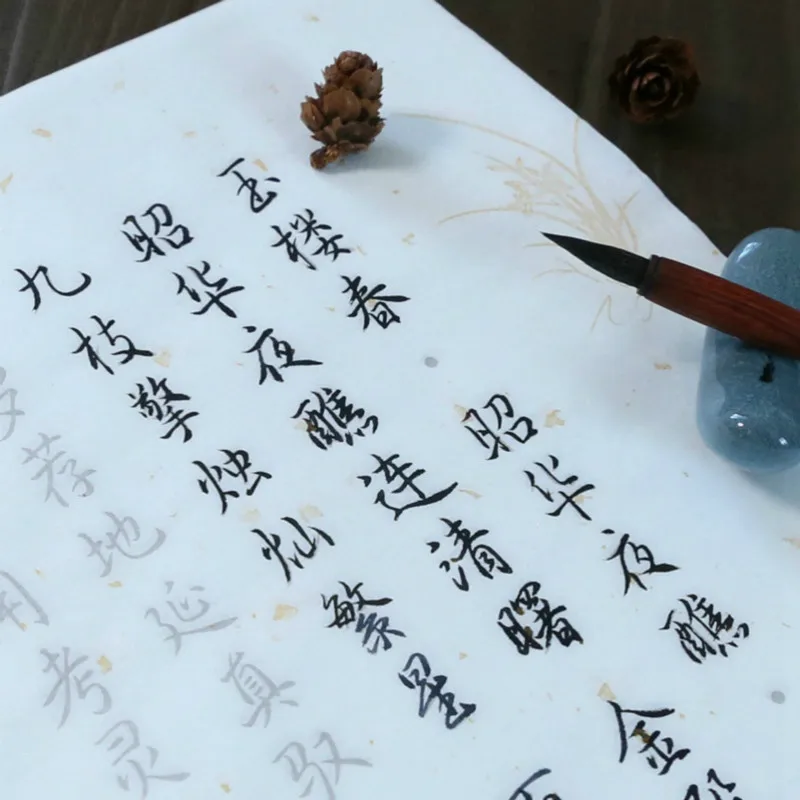 玉楼春·昭华夜醮·
昭华夜醮连清曙 金
九枝擎烛灿繁星
荐地延真驭
用考灵